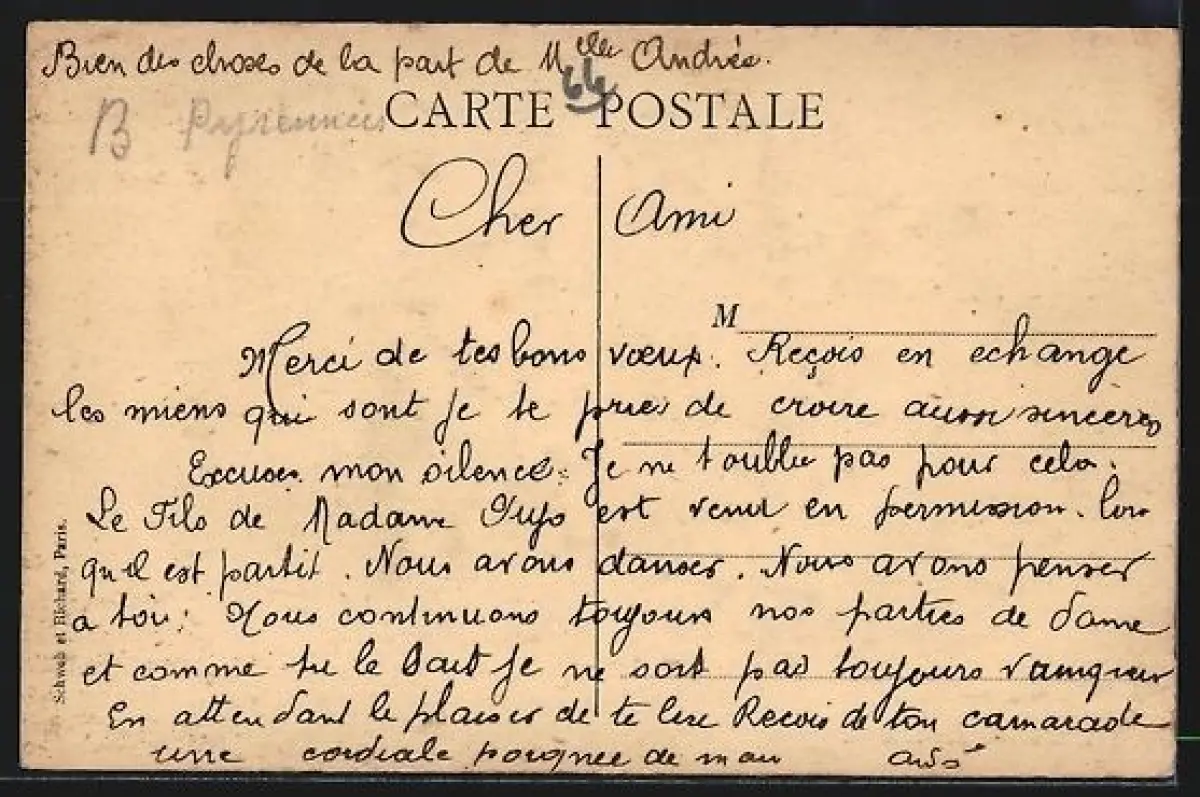 Bien des choses de la part de Melle Andrée.
64
B Pyrennees
CARTE POSTALE
Cher Ami
M
Merci de tes bons vœux. Reçois en echange
les miens qui sont je te prie de croire aussi sincères
Excuses mon silence. Je ne t'oublie pas pour cela.
Le Fils de Madame est venu en permission. lors
qu'il est partit. Nous avons danser. Nous avons penser
a toi. Nous continuons toujours nos parties de dame
et comme tu le sait je ne sort pas toujours vainqueur
En attendant le plaisir de te lire Recois de ton camarade
une cordiale poignee de main
Schwab et Richard, Paris.